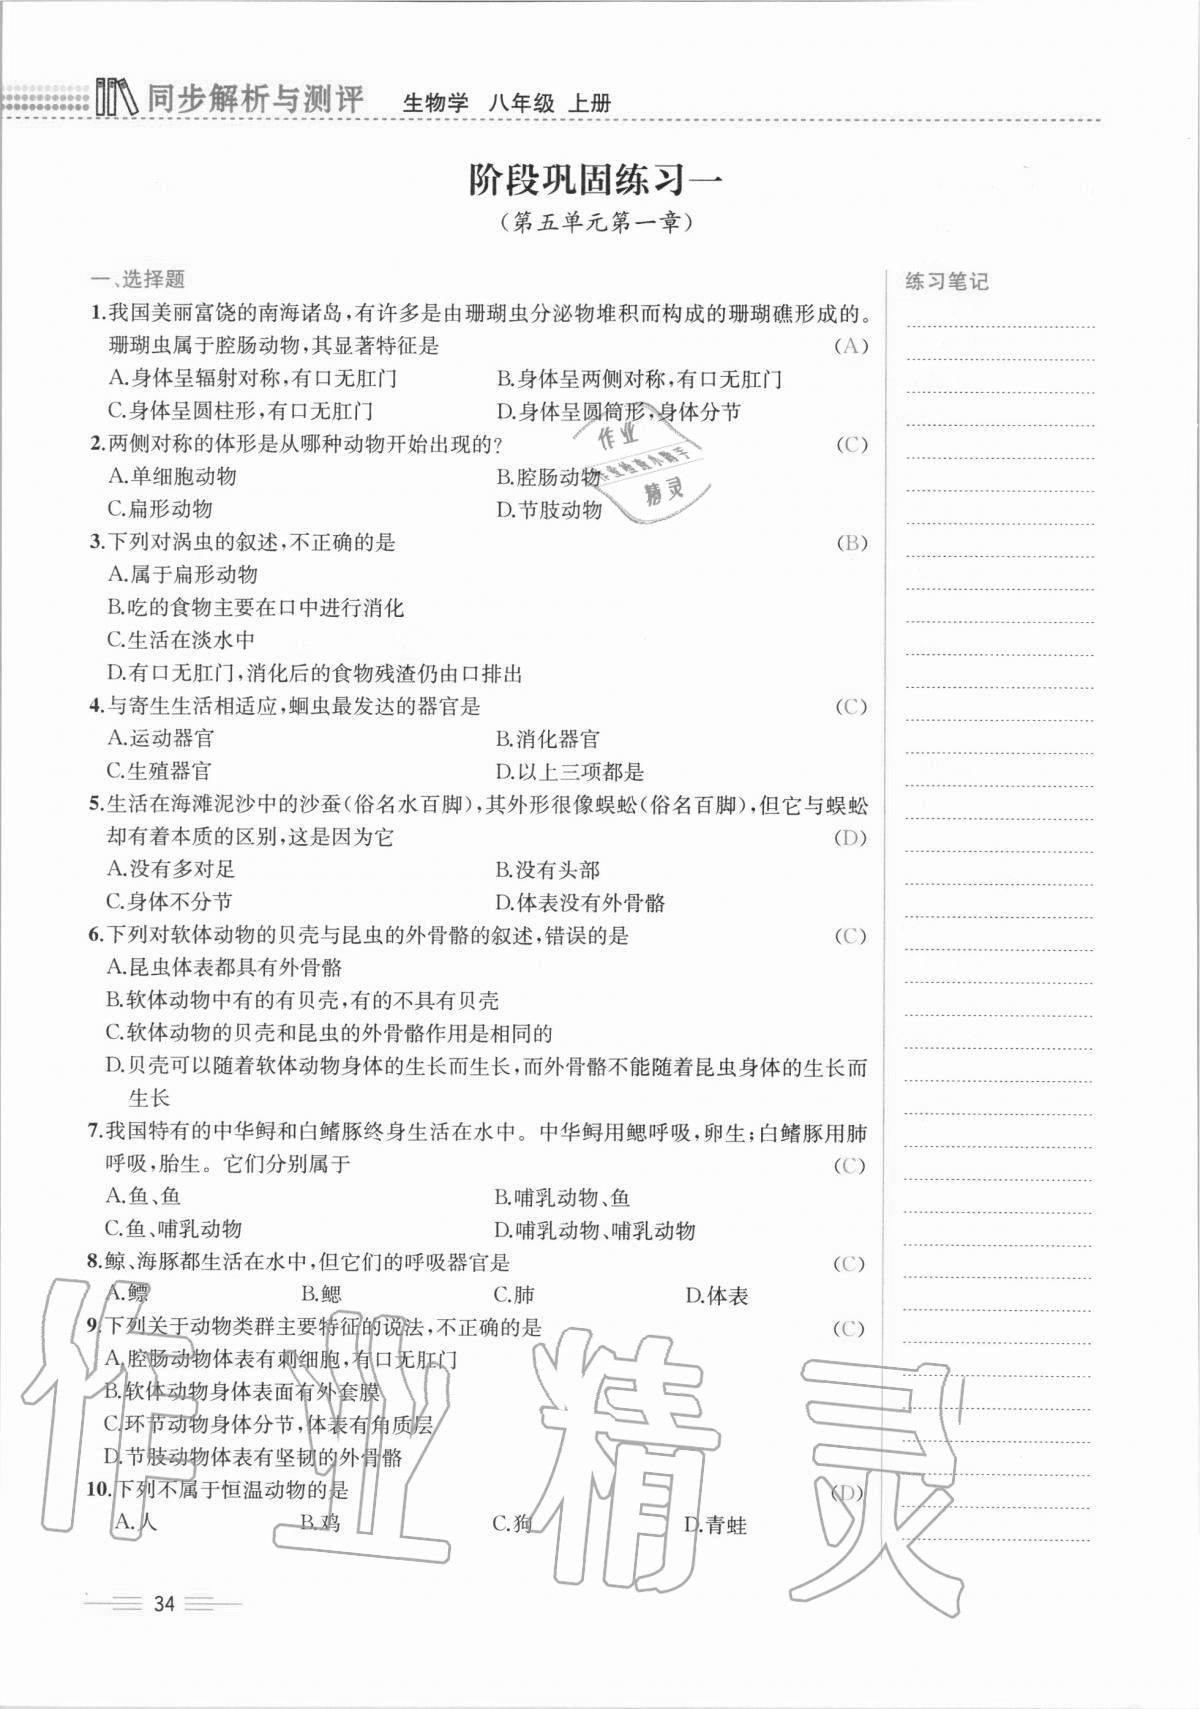 同步解析与测评 生物学 八年级 上册
阶段巩固练习一
(第五单元第一章)
一、选择题
练习笔记
1.我国美丽富饶的南海诸岛,有许多是由珊瑚虫分泌物堆积而构成的珊瑚礁形成的。
珊瑚虫属于腔肠动物,其显著特征是 (A)
A.身体呈辐射对称,有口无肛门 B.身体呈两侧对称,有口无肛门
C.身体呈圆柱形,有口无肛门 D.身体呈圆筒形,身体分节
2.两侧对称的体形是从哪种动物开始出现的? (C)
A.单细胞动物 B.腔肠动物
C.扁形动物 D.节肢动物
3.下列对涡虫的叙述,不正确的是 (B)
A.属于扁形动物
B.吃的食物主要在口中进行消化
C.生活在淡水中
D.有口无肛门,消化后的食物残渣仍由口排出
4.与寄生生活相适应,蛔虫最发达的器官是 (C)
A.运动器官 B.消化器官
C.生殖器官 D.以上三项都是
5.生活在海滩泥沙中的沙蚕(俗名水百脚),其外形很像蜈蚣(俗名百脚),但它与蜈蚣
却有着本质的区别,这是因为它 (D)
A.没有多对足 B.没有头部
C.身体不分节 D.体表没有外骨骼
6.下列对软体动物的贝壳与昆虫的外骨骼的叙述,错误的是 (C)
A.昆虫体表都具有外骨骼
B.软体动物中有的有贝壳,有的不具有贝壳
C.软体动物的贝壳和昆虫的外骨骼作用是相同的
D.贝壳可以随着软体动物身体的生长而生长,而外骨骼不能随着昆虫身体的生长而
生长
7.我国特有的中华鲟和白鳍豚终身生活在水中。中华鲟用鳃呼吸,卵生;白鳍豚用肺
呼吸,胎生。它们分别属于 (C)
A.鱼、鱼 B.哺乳动物、鱼
C.鱼、哺乳动物 D.哺乳动物、哺乳动物
8.鲸、海豚都生活在水中,但它们的呼吸器官是 (C)
A.鳔 B.鳃 C.肺 D.体表
9.下列关于动物类群主要特征的说法,不正确的是 (C)
A.腔肠动物体表有刺细胞,有口无肛门
B.软体动物身体表面有外套膜
C.环节动物身体分节,体表有角质层
D.节肢动物体表有坚韧的外骨骼
10.下列不属于恒温动物的是 (D)
A.人 B.鸡 C.狗 D.青蛙
34
作业
作业检查小助手
精灵
作业精灵